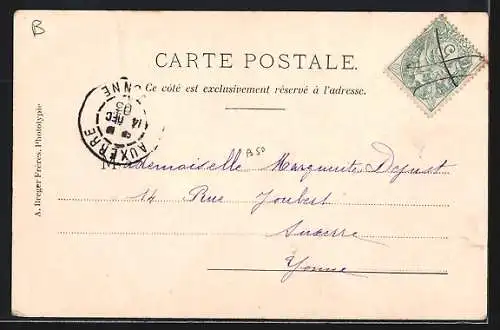 B
CARTE POSTALE.
Ce côté est exclusivement réservé à l'adresse.
AUXERRE
YONNE
14
DEC
03
B50
Mademoiselle Marguerite
14 Rue Joubert
Auxerre
Yonne
A. Breger Frères, Phototypie